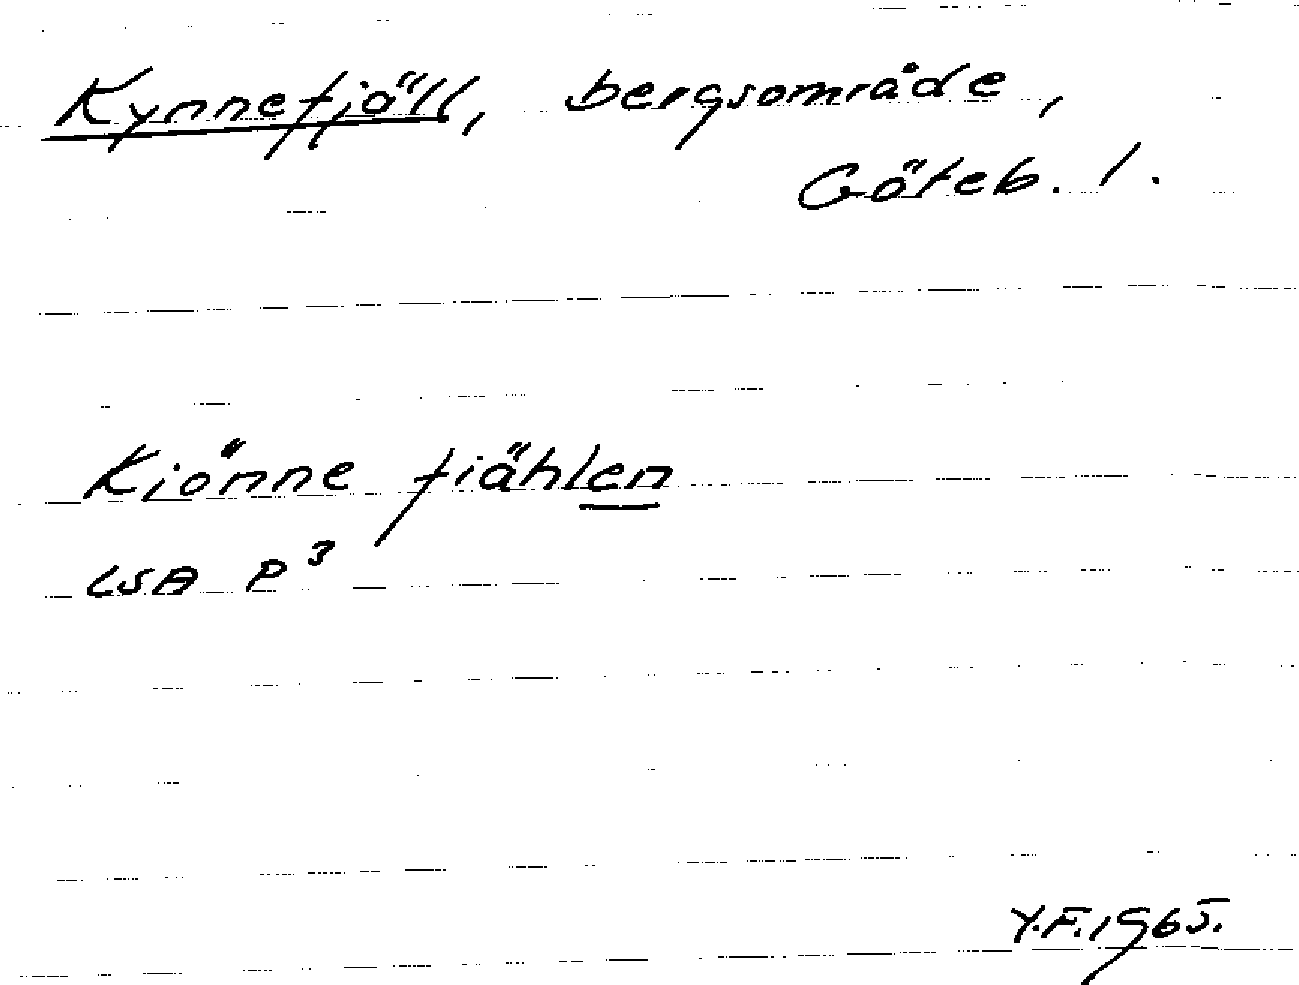 Kynnefjäll, bergsområde,
Göteb. l.
Kiönne fiählen
LSA P3
Y.F.1965.